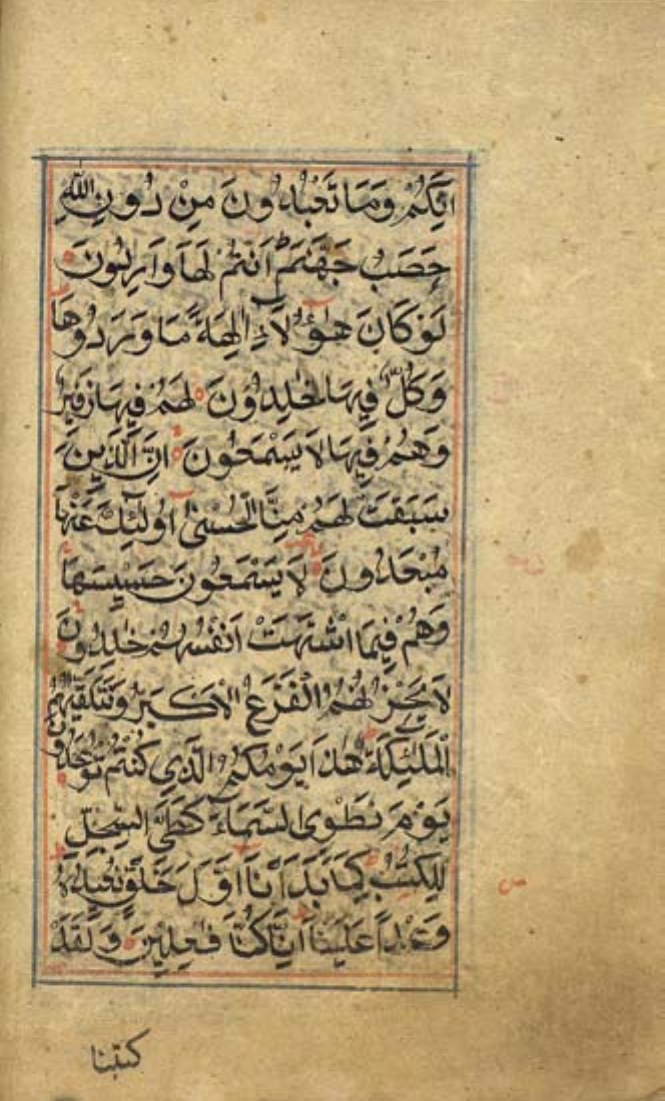 اِنَّكُمْ وَمَا تَعْبُدُوْنَ مِنْ دُوْنِ اللّٰهِ
حَصَبُ جَهَنَّمَ اَنْتُمْ لَهَا وَارِدُوْنَ
لَوْ كَانَ هٰٓؤُلَاۤءِ اٰلِهَةً مَا وَرَدُوْهَا
وَكُلٌّ فِيْهَا خٰلِدُوْنَ لَهُمْ فِيْهَا زَفِيْرٌ
وَهُمْ فِيْهَا لَا يَسْمَعُوْنَ اِنَّ الَّذِيْنَ
سَبَقَتْ لَهُمْ مِنَّا الْحُسْنٰى اُولٰٓئِكَ عَنْهَا
مُبْعَدُوْنَ لَا يَسْمَعُوْنَ حَسِيْسَهَا
وَهُمْ فِيْمَا اشْتَهَتْ اَنْفُسُهُمْ خٰلِدُوْنَ
لَا يَحْزُنُهُمُ الْفَزَعُ الْاَكْبَرُ وَتَتَلَقّٰىهُمُ
الْمَلٰٓئِكَةُ هٰذَا يَوْمُكُمُ الَّذِيْ كُنْتُمْ تُوْعَدُوْنَ
يَوْمَ نَطْوِى السَّمَاۤءَ كَطَيِّ السِّجِلِّ
لِلْكُتُبِ كَمَا بَدَاْنَا اَوَّلَ خَلْقٍ نُعِيْدُهُ
وَعْدًا عَلَيْنَا اِنَّا كُنَّا فٰعِلِيْنَ وَلَقَدْ
كتبنا